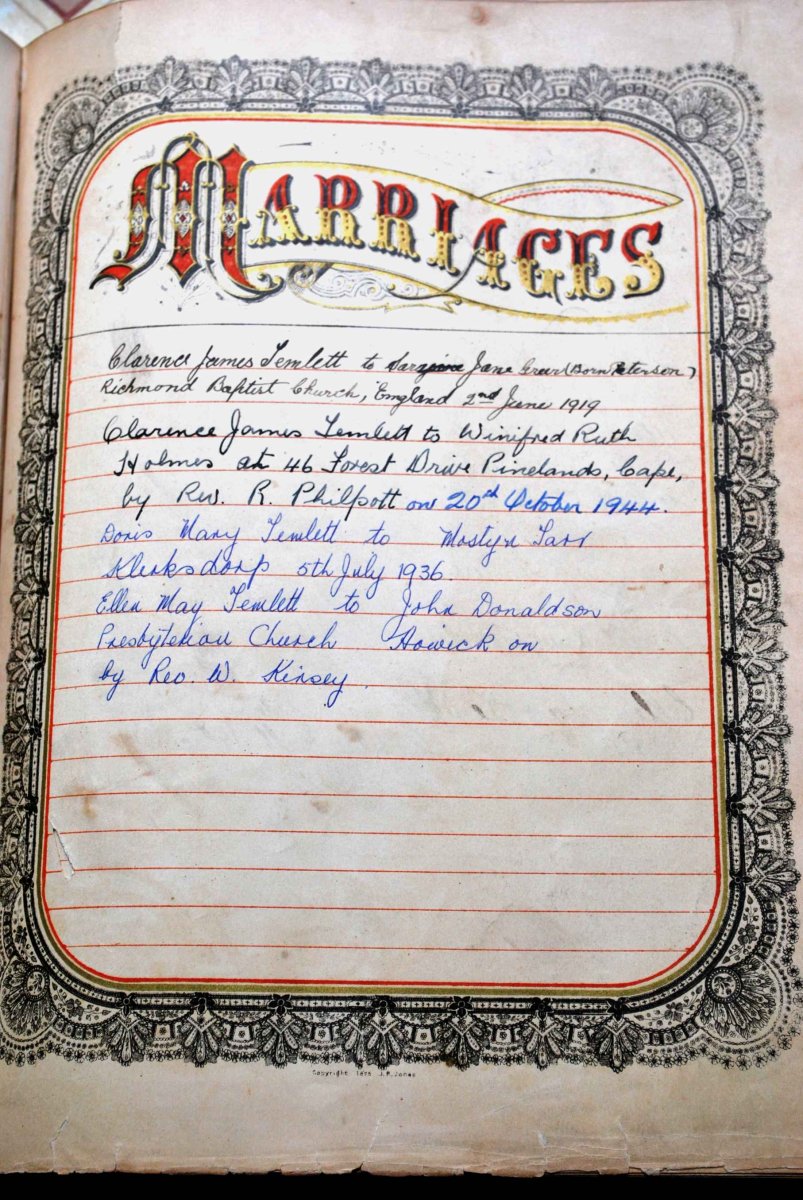 MARRIAGES
Clarence James Temlett to Jane Greer (Born Peterson)
Richmond Baptist Church, England 2nd June 1919
Clarence James Temlett to Winifred Ruth
Holmes at 46 Forest Drive Pinelands, Cape,
by Rev. R. Philpott on 20th October 1944.
Doris Mary Temlett to Mostyn Tarr
Klerksdorp 5th July 1936.
Ellen May Temlett to John Donaldson
Presbyterian Church Howick on
by Rev. W. Kinsey.
Copyright 1875 J.R. Jones